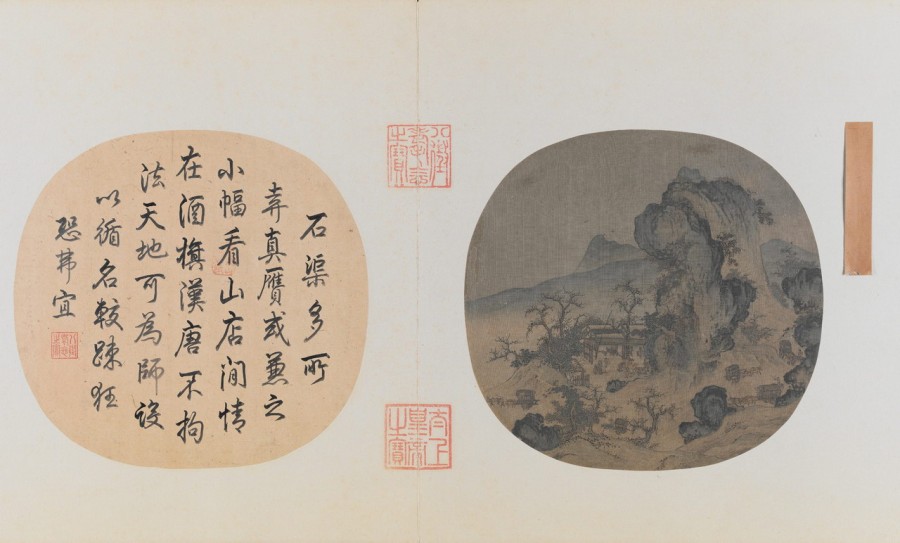 石渠多所
弆真贋或兼之
小幅看山店閒情
在酒旗漢唐不拘
法天地可為師設
以循名較踈狂
恐弗宜
八徵耄念之寶
太上皇帝之寶